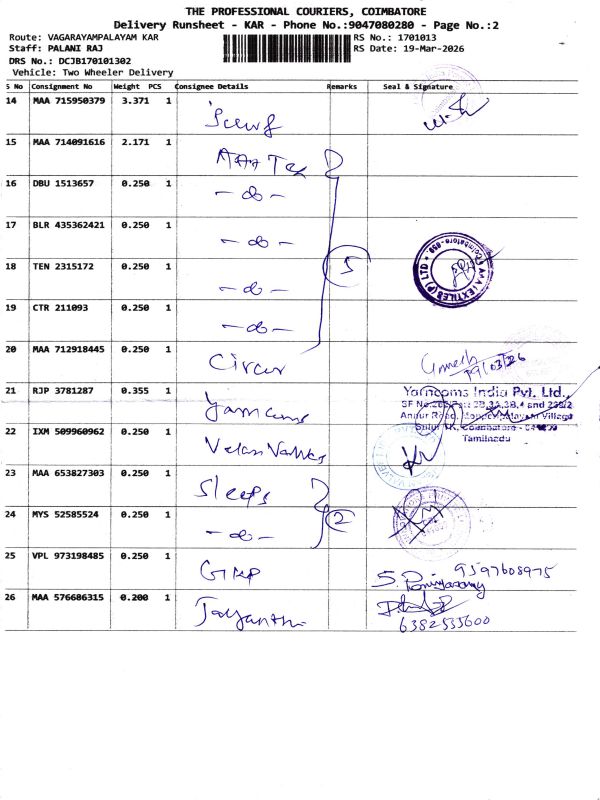 THE PROFESSIONAL COURIERS, COIMBATORE
Delivery Runsheet - KAR - Phone No.:9047080280 - Page No.:2
Route: VAGARAYAMPALAYAM KAR
RS No.: 1701013
Staff: PALANI RAJ
RS Date: 19-Mar-2026
DRS No.: DCJB170101302
Vehicle: Two Wheeler Delivery
S No Consignment No Weight PCS Consignee Details Remarks Seal & Signature
14 MAA 715950379 3.371 1
15 MAA 714091616 2.171 1
16 DBU 1513657 0.250 1 - do -
17 BLR 435362421 0.250 1 - do -
18 TEN 2315172 0.250 1 - do - 5
19 CTR 211093 0.250 1 - do -
20 MAA 712918445 0.250 1 Circor 19/03/26
21 RJP 3781287 0.355 1 Yarncoms
Yarncoms India Pvt. Ltd.,
22 IXM 509960962 0.250 1 Velan Valves
Tamilnadu
23 MAA 653827303 0.250 1 Sleeps
24 MYS 52585524 0.250 1 - do - 2
25 VPL 973198485 0.250 1 9597608975
26 MAA 576686315 0.200 1 Jayanthi
6382535600